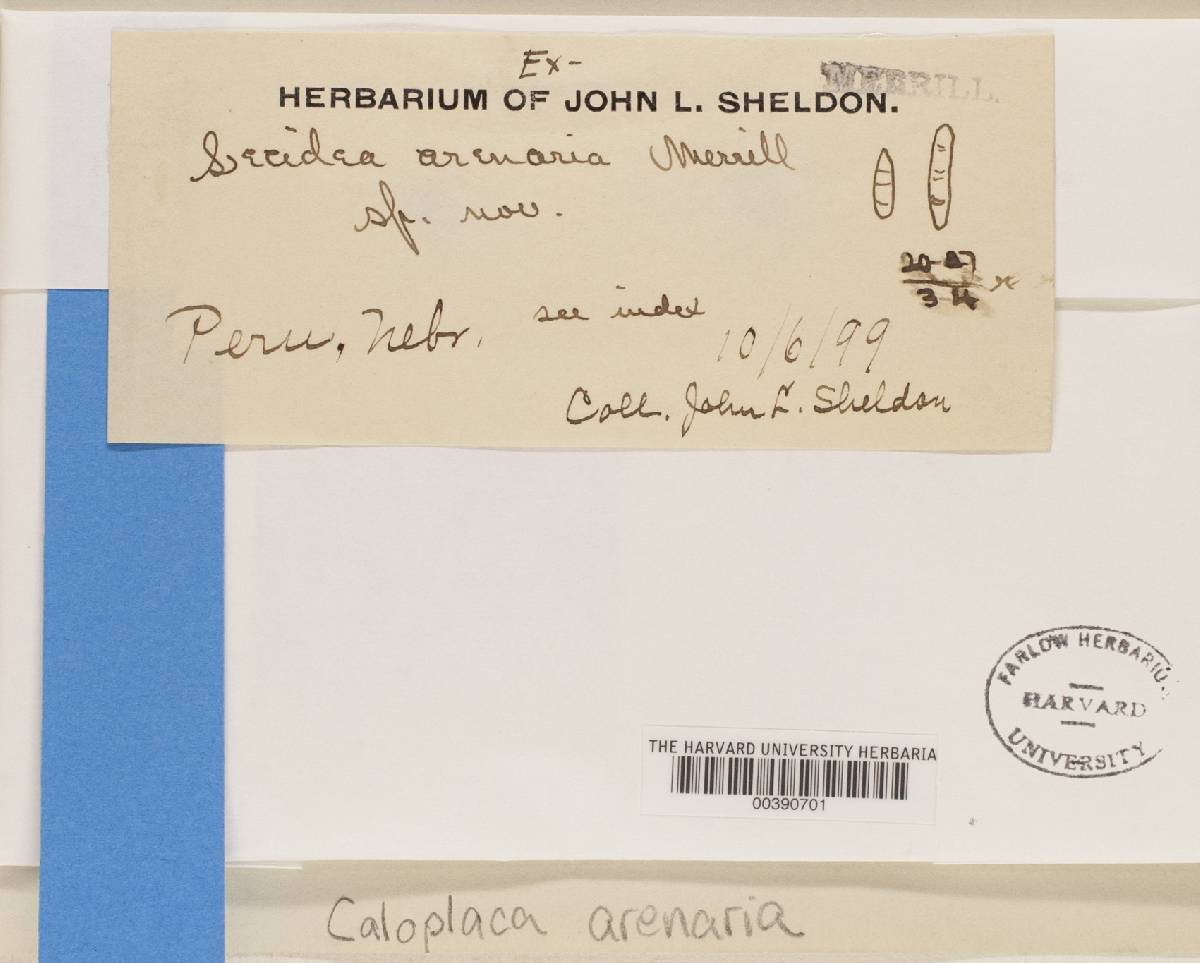 Ex-
MERRILL.
HERBARIUM OF JOHN L. SHELDON.
Lecidea arenaria Merrill
sp. nov.
20-27
3-4
Peru, Nebr. see index
10/6/99
Coll. John L. Sheldon
FARLOW HERBARIU
HARVARD
UNIVERSITY
THE HARVARD UNIVERSITY HERBARIA
00390701
Caloplaca arenaria